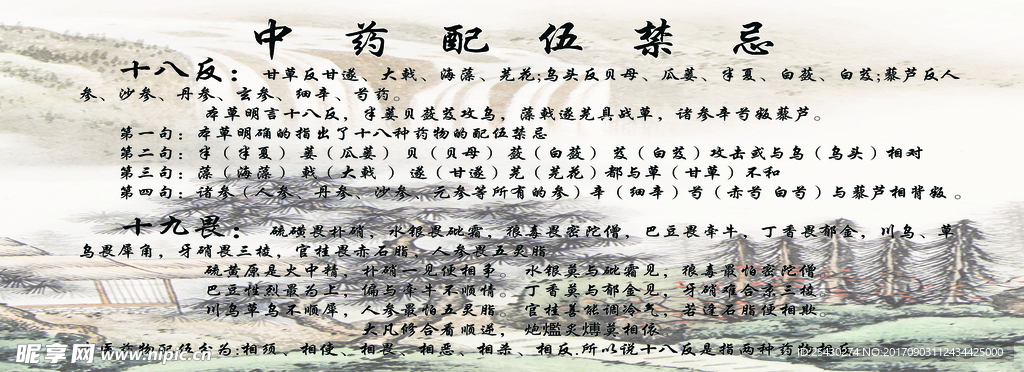 中药配伍禁忌
十八反：甘草反甘遂、大戟、海藻、芫花;乌头反贝母、瓜蒌、半夏、白蔹、白芨;藜芦反人
参、沙参、丹参、玄参、细辛、芍药。
本草明言十八反，半蒌贝蔹芨攻乌，藻戟遂芫具战草，诸参辛芍叛藜芦。
第一句：本草明确的指出了十八种药物的配伍禁忌
第二句：半（半夏）蒌（瓜蒌）贝（贝母）蔹（白蔹）芨（白芨）攻击或与乌（乌头）相对
第三句：藻（海藻）戟（大戟）遂（甘遂）芫（芫花）都与草（甘草）不和
第四句：诸参（人参、丹参、沙参、元参等所有的参）辛（细辛）芍（赤芍 白芍）与藜芦相背叛。
十九畏：硫磺畏朴硝，水银畏砒霜，狼毒畏密陀僧，巴豆畏牵牛，丁香畏郁金，川乌、草
乌畏犀角，牙硝畏三棱，官桂畏赤石脂，人参畏五灵脂
硫黄原是火中精，朴硝一见便相争。水银莫与砒霜见，狼毒最怕密陀僧
巴豆性烈最为上，偏与牵牛不顺情。丁香莫与郁金见，牙硝难合京三棱
川乌草乌不顺犀，人参最怕五灵脂。官桂善能调冷气，若逢石脂便相欺。
大凡修合看顺逆，炮爁炙煿莫相依
药物配伍分为:相须、相使、相畏、相恶、相杀、相反,所以说十八反是指两种药物相反
昵享网 www.nipic.cn
ID:25430274 NO:20170903112434425000